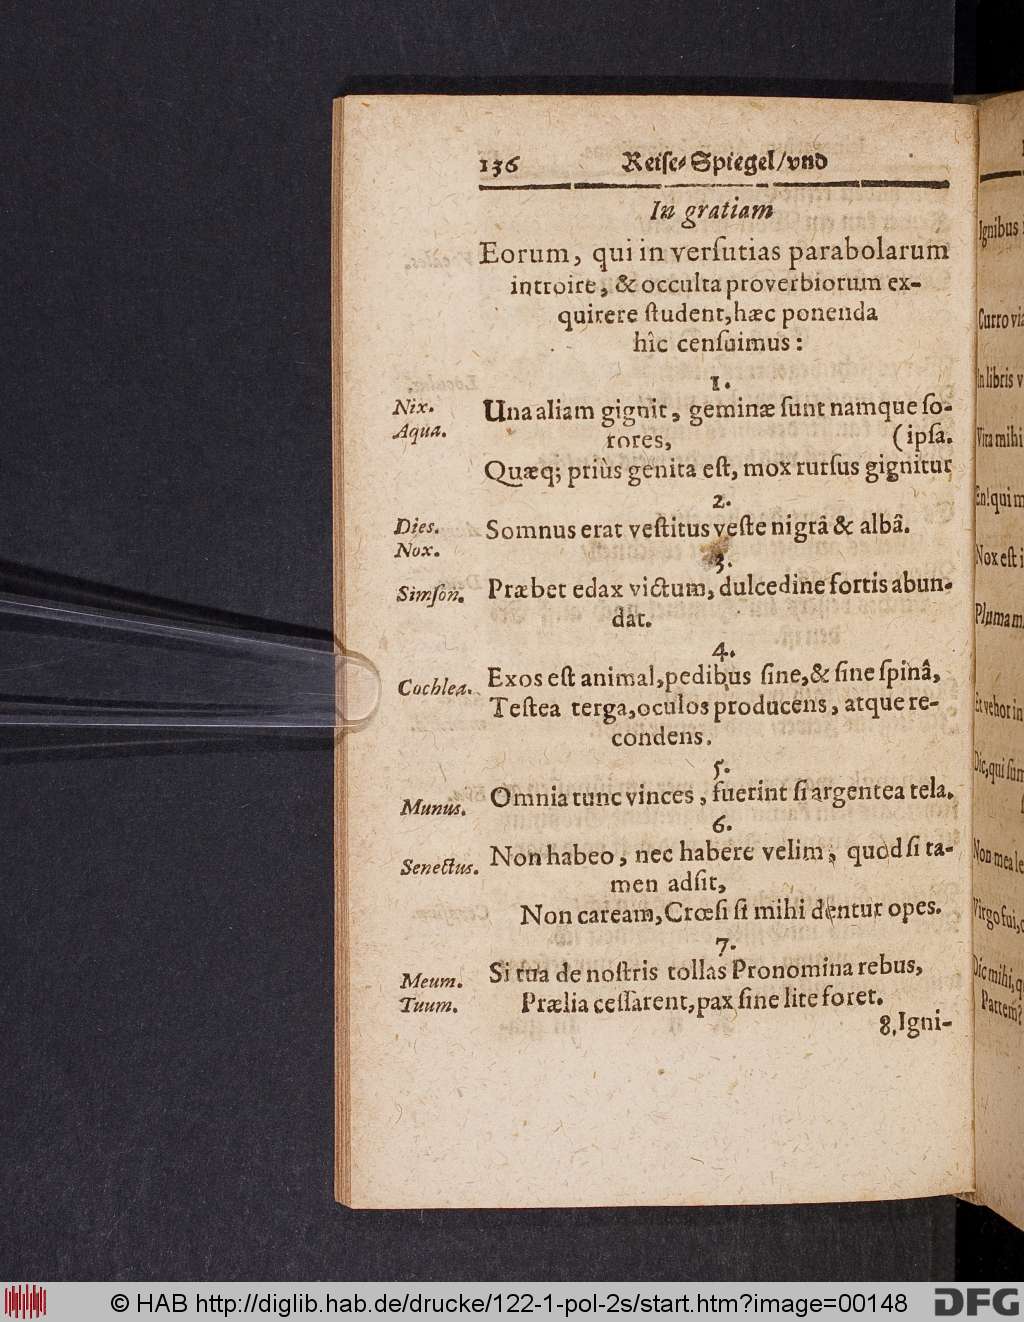 136 Reise-Spiegel/vnd
In gratiam
Eorum, qui in verſutias parabolarum
introire, & occulta proverbiorum ex-
quirere ſtudent, hæc ponenda
hîc cenſuimus:
1.
Nix. Una aliam gignit, geminæ ſunt namque ſo-
Aqua. rores, (ipſa.
Quæq; priùs genita eſt, mox rurſus gignitur
2.
Dies. Somnus erat veſtitus veſte nigrâ & albâ.
Nox.
3.
Simſon. Præbet edax victum, dulcedine fortis abun-
dat.
4.
Cochlea. Exos eſt animal, pedibus ſine, & ſine ſpinâ,
Teſtea terga, oculos producens, atque re-
condens.
5.
Munus. Omnia tunc vinces, fuerint ſi argentea tela.
6.
Senectus. Non habeo, nec habere velim, quod ſi ta-
men adſit,
Non caream, Crœſi ſi mihi dentur opes.
7.
Meum. Si tua de noſtris tollas Pronomina rebus,
Tuum. Prælia ceſſarent, pax ſine lite foret.
8. Igni-
Ignibus
Curro via
In libris v
Vita mihi
En! qui m
Nox eſt i
Pluma m
Et vehor in
Dic, qui ſum
Non mea le
Virgo fui, c
Dic mihi, q
Partem?
© HAB http://diglib.hab.de/drucke/122-1-pol-2s/start.htm?image=00148
DFG